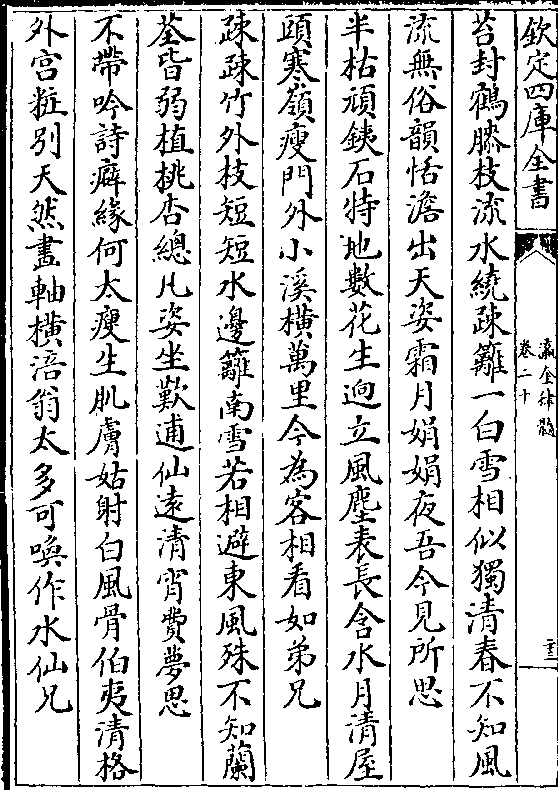 欽定四庫全書
瀛奎律髓
卷二十
苔封鶴膝枝流水繞疎籬一白雪相似獨清春不知風
流無俗韻恬澹出天姿霜月娟娟夜吾今見所思
半枯頑鐵石特地數花生逈立風塵表長含水月清屋
頭寒嶺瘦門外小溪橫萬里今為客相看如弟兄
疎疎竹外枝短短水邊籬南雪若相避東風殊不知蘭
荃皆弱植桃杏總凡姿坐歎逋仙逺清宵費夢思
不帶吟詩癖緣何太瘦生肌膚姑射白風骨伯夷清格
外宮粧別天然畫軸橫涪翁太多可喚作水仙兄